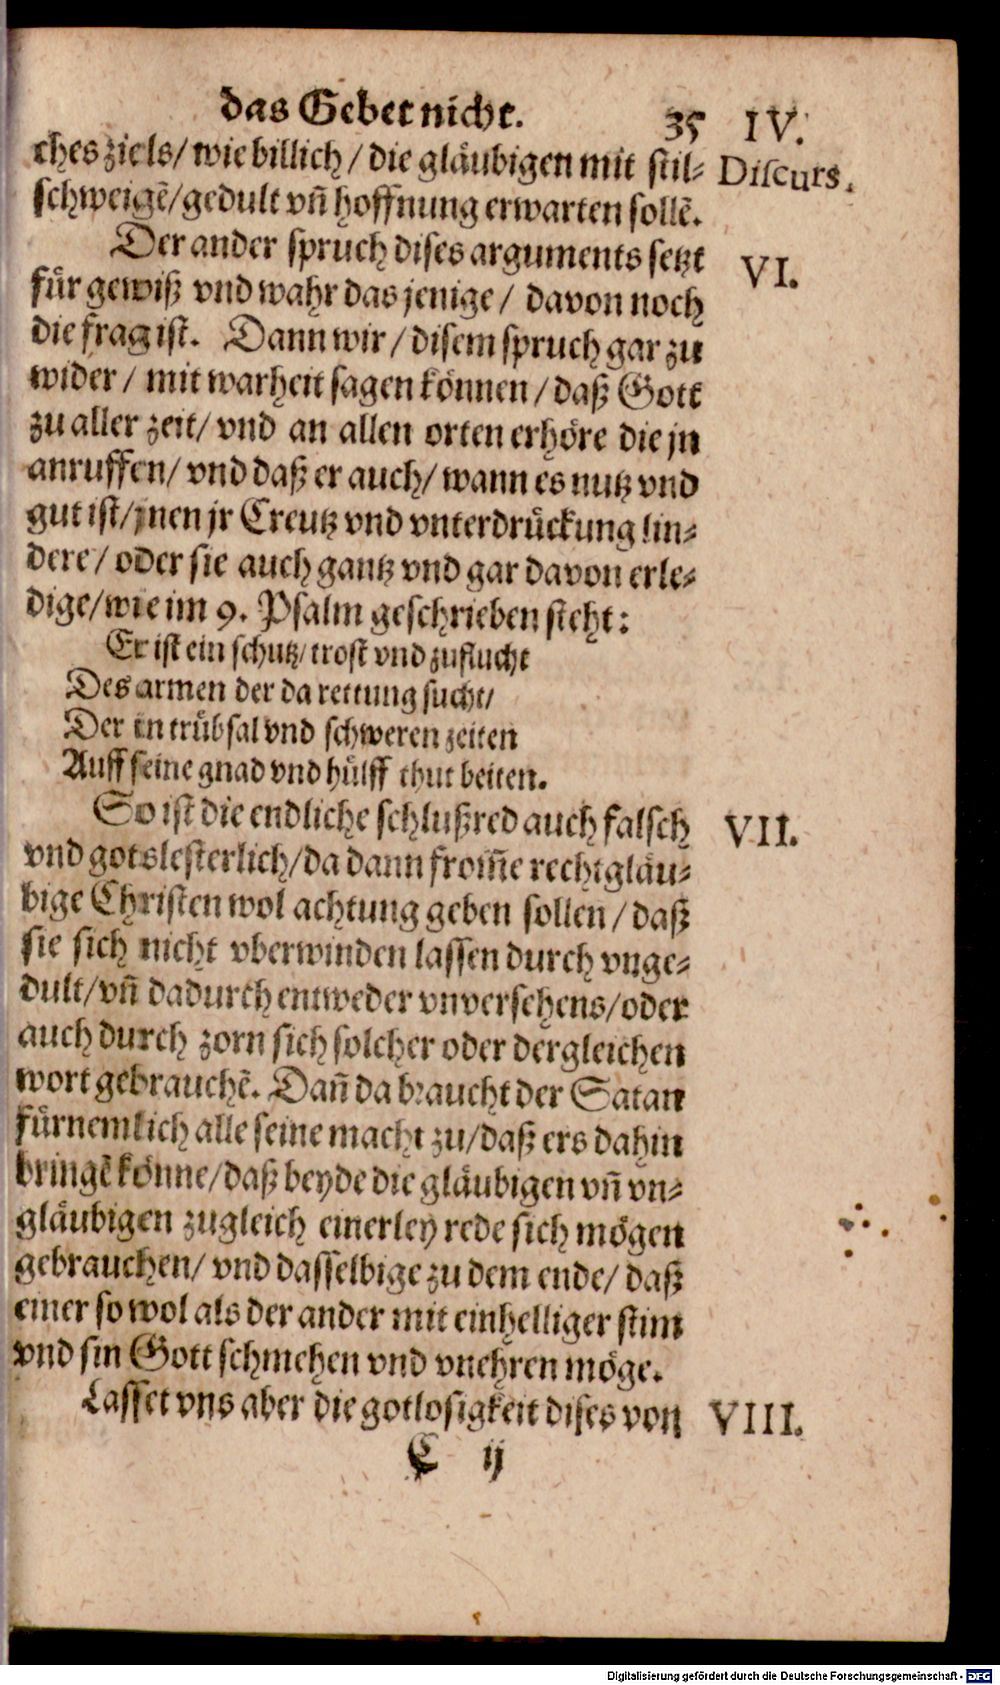 das Gebet nicht. 35 IV.
ches ziels/ wie billich/ die gläubigen mit stil- Discurs.
schweigẽ/ gedult vñ hoffnung erwarten sollẽ.
Der ander spruch dises arguments setzt VI.
fůr gewiß vnd wahr das jenige/ davon noch
die frag ist. Dann wir/ disem spruch gar zu
wider/ mit warheit sagen können/ daß Gott
zu aller zeit/ vnd an allen orten erhöre die jn
anruffen/ vnd daß er auch/ wann es nutz vnd
gut ist/ jnen jr Creutz vnd vnterdrůckung lin-
dere/ oder sie auch gantz vnd gar davon erle-
dige/ wie im 9. Psalm geschrieben steht:
Er ist ein schutz/ trost vnd zuflucht
Des armen der da rettung sucht/
Der in trůbsal vnd schweren zeiten
Auff seine gnad vnd hůlff thut beiten.
So ist die endliche schlußred auch falsch VII.
vnd gotslesterlich/ da dann from̃e rechtgläu-
bige Christen wol achtung geben sollen/ daß
sie sich nicht vberwinden lassen durch vnge-
dult/ vñ dadurch entweder vnversehens/ oder
auch durch zorn sich solcher oder dergleichen
wort gebrauchẽ. Dañ da braucht der Satan
fůrnemlich alle seine macht zu/ daß ers dahin
bringẽ könne/ daß beyde die gläubigen vñ vn-
gläubigen zugleich einerley rede sich mögen
gebrauchen/ vnd dasselbige zu dem ende/ daß
einer so wol als der ander mit einhelliger stim
vnd sin Gott schmehen vnd vnehren möge.
Lasset vns aber die gotlosigkeit dises von VIII.
C ij
Digitalisierung gefördert durch die Deutsche Forschungsgemeinschaft - DFG